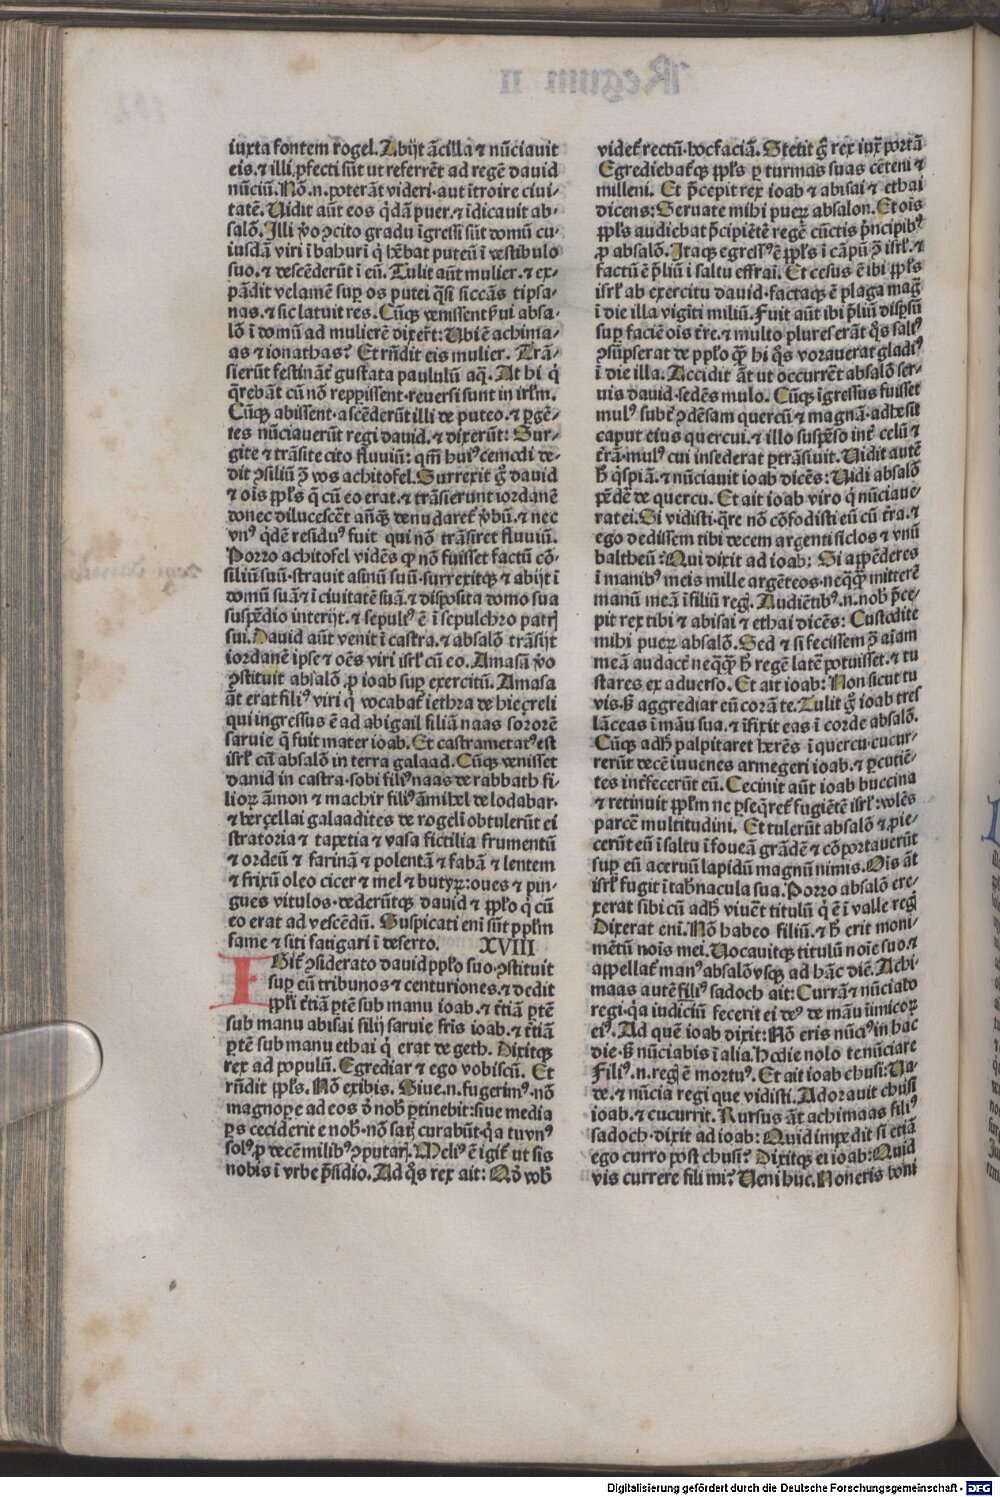 iuxta fontem rogel. Abijt ācilla ⁊ nūciauit
eis. ⁊ illi ꝓfecti sūt ut referrēt ad regē dauid
nūciū. Nō .n. poterāt videri aut ītroire ciui⸗
tatē. Uidit aūt eos q̇dā puer. ⁊ īdicauit ab⸗
salō. Illi ꝟo ꝯcito gradu īgressi sūt domū cu⸗
iusdā viri ī baburī q̇ hēbat puteū ī vestibulo
suo. ⁊ descēderūt ī eū. Tulit aūt mulier. ⁊ ex⸗
pādit velamē sup os putei q̄si siccās tipsa⸗
nas. ⁊ sic latuit res. Cūqꝫ venissent ẜui absa⸗
lō ī domū ad mulierē dixer̄t: Ubi ē achima⸗
as ⁊ ionathas? Et rn̄dit eis mulier. Trā⸗
sierūt festināt̄ gustata paululū aq̄. At hi q̇
q̄rebāt cū nō reppissent. reuersi sunt in irlm̄.
Cūqꝫ abissent. ascēderūt illi de puteo. ⁊ ꝑgē⸗
tes nūciauerūt regi dauid. ⁊ dixerūt: Sur⸗
gite ⁊ trāsite cito fluuiū: qm̄ huiꝰcemodi de⸗
dit ꝯsiliū ꝯ̄ vos achitofel. Surrexit g̊ dauid
⁊ ois ppl̄s q̇ cū eo erat. ⁊ trāsierunt iordanē
donec dilucescēt añqꝫ denudaret̄ ꝟbū. ⁊ nec
vnꝰ q̇dē residuꝰ fuit qui nō trāsiret fluuiū.
Porro achitofel vidēs ꝙ nō fuisset factū cō⸗
siliū suū. strauit asinū suū. surrexitqꝫ ⁊ abijt ī
domū suā ⁊ ī ciuitatē suā. ⁊ disposita domo sua
suspēdio interijt. ⁊ sepultꝰ ē ī sepulchro patrꝭ
sui. Dauid aūt venit ī castra. ⁊ absalō trāsijt
iordanē ipse ⁊ oēs viri isrl̄ cū eo. Amasā ꝟo
ꝯstituit absalō ꝓ ioab sup exercitū. Amasa
āt erat filiꝰ viri q̇ vocabat̄ iethra de hieçreli
qui ingressus ē ad abigail filiā naas sororē
saruie q̄ fuit mater ioab. Et castrametatꝰ est
isrl̄ cū absalō in terra galaad. Cūqꝫ venisset
dauid in castra. sobi filiꝰ naas de rabbath fi⸗
lioꝝ āmon ⁊ machir filiꝰ āmihel de lodabar.
⁊ berçellai galaadites de rogelī obtulerūt ei
stratoria ⁊ tapetia ⁊ vasa fictilia frumentū
⁊ ordeū ⁊ farinā ⁊ polentā ⁊ fabā ⁊ lentem
⁊ frixū oleo cicer ⁊ mel ⁊ butyꝝ: oues ⁊ pin⸗
gues vitulos. dederūtqꝫ dauid ⁊ ppl̄o q̇ cū
eo erat ad vescēdū. Suspicati eni sūt ppl̄m
fame ⁊ siti fatigari ī deserto. XVIII
IGit̄ ꝯsiderato dauid ppl̄o suo. ꝯstituit
sup eū tribunos ⁊ centuriones. ⁊ dedit
ppl̄i t̄tiā ꝑtē sub manu ioab. ⁊ t̄tiā ꝑtē
sub manu abisai filij saruie fr̄is ioab. ⁊ t̄tiā
ꝑtē sub manu ethai q̇ erat de geth. Dixitqꝫ
rex ad populū. Egrediar ⁊ ego vobiscū. Et
rn̄dit ppl̄s. Nō exibis. Siue .n. fugerimꝰ. nō
magnope ad eos ō nob̄ ꝑtinebit: siue media
ꝑs ceciderit e nob̄. nō satꝭ curabūt. q̇a tu vnꝰ
solꝰ ꝓ decē milibꝰ ꝯputarꝭ. Meliꝰ ē igit̄ ut sis
nobis ī vrbe p̄sidio. Ad q̊s rex ait: Qḋ vob̄
videt̄ rectū. hoc faciā. Stetit g̊ rex iux̄ portā
Egrediebat̄qꝫ ppl̄s ꝑ turmas suas cēteni ⁊
milleni. Et p̄cepit rex ioab ⁊ abisai ⁊ ethai
dicens: Seruate mihi pueꝝ absalon. Et ois
ppl̄s audiebat p̄cipiētē regē cūctis p̄ncipibꝰ
ꝓ absalō. Itaqꝫ egressꝰ ē ppl̄s ī cāpū ꝯ̄ isrl̄. ⁊
factū ē p̄liū ī saltu effraī. Et cesus ē ibi ppl̄s
isrl̄ ab exercitu dauid. factaqꝫ ē plaga maḡ
ī die illa vigīti miliū. Fuit aūt ibi p̄liū disꝑsū
sup faciē ois tr̄e. ⁊ multo plures erāt q̊s saltꝰ
ꝯsūpserat de ppl̄o q̄ꝫ hi q̊s vorauerat gladiꝰ
ī die illa. Accidit āt ut occurrēt absalō ser⸗
uis dauid. sedēs mulo. Cūqꝫ īgressus fuisset
mulꝰ subt̄ ꝯdēsam quercū ⁊ magnā. adhesit
caput eius quercui. ⁊ illo suspēso int̄ celū ⁊
t̄rā. mulꝰ cui insederat ꝑtrāsiuit. Uidit autē
h̄ q̇spiā. ⁊ nūciauit ioab dicēs: Uidi absalō
pēdē de quercu. Et ait ioab viro q̇ nūciaue⸗
rat ei. Si vidisti. q̄re nō cōfodisti eū cū t̄ra. ⁊
ego dedissem tibi decem argenti siclos ⁊ vnū
baltheū? Qui dixit ad ioab: Si appēderes
ī manibꝰ meis mille argēteos. neq̄qꝫ mitterē
manū meā ī filiū regꝭ. Audiētibꝰ .n. nob̄ p̄ce⸗
pit rex tibi ⁊ abisai ⁊ ethai dicēs: Custodite
mihi pueꝝ absalō. Sed ⁊ si fecissem ꝯ̄ aīam
meā audact̄ neq̄qꝫ h̄ regē latē potuisset. ⁊ tu
stares ex aduerso. Et ait ioab: Non sicut tu
vis. ẜ aggrediar eū corā te. Tulit g̊ ioab tres
lāceas ī māu sua. ⁊ īfixit eas ī corde absalō.
Cūqꝫ adh̄ palpitaret herēs ī quercu. cucur⸗
rerūt decē iuuenes armegeri ioab. ⁊ ꝑcutiē⸗
tes int̄fecerūt eū. Cecinit aūt ioab buccina
⁊ retinuit ppl̄m ne ꝑseq̄ret̄ fugiētē isrl̄: volēs
parcē multitudini. Et tulerūt absalō ⁊ ꝓie⸗
cerūt eū ī saltu ī foueā grādē ⁊ cōportauerūt
sup eū aceruū lapidū magnū nimis. Ois āt
isrl̄ fugit ī tab̄nacula sua. Porro absalō ere⸗
xerat sibi cū adh̄ viuēt titulū q̇ ē ī valle regꝭ
Dixerat eni. Nō habeo filiū. ⁊ h̄ erit moni⸗
mētū nois mei. Uocauitqꝫ titulū noīe suo. ⁊
appellat̄ manꝰ absalō vsqꝫ ad hāc diē. Achi⸗
maas autē filiꝰ sadoch ait: Currā ⁊ nūciabo
regi. q̇a iudiciū fecerit ei deꝰ de māu īimicoꝝ
eiꝰ. Ad quē ioab dixit: Nō eris nūciꝰ in hac
die. ẜ nūciabis ī alia. Hodie nolo te nūciare
Filiꝰ .n. regꝭ ē mortuꝰ. Et ait ioab chusi: Ua⸗
de. ⁊ nūcia regi que vidisti. Adorauit chusi
ioab. ⁊ cucurrit. Rursus āt achimaas filiꝰ
sadoch. dixit ad ioab: Quid impedit si etiā
ego curro post chusi? Dixitqꝫ ei ioab: Quid
vis currere fili mi? Ueni huc. Non eris boni
Digitalisierung gefördert durch die Deutsche Forschungsgemeinschaft - DFG